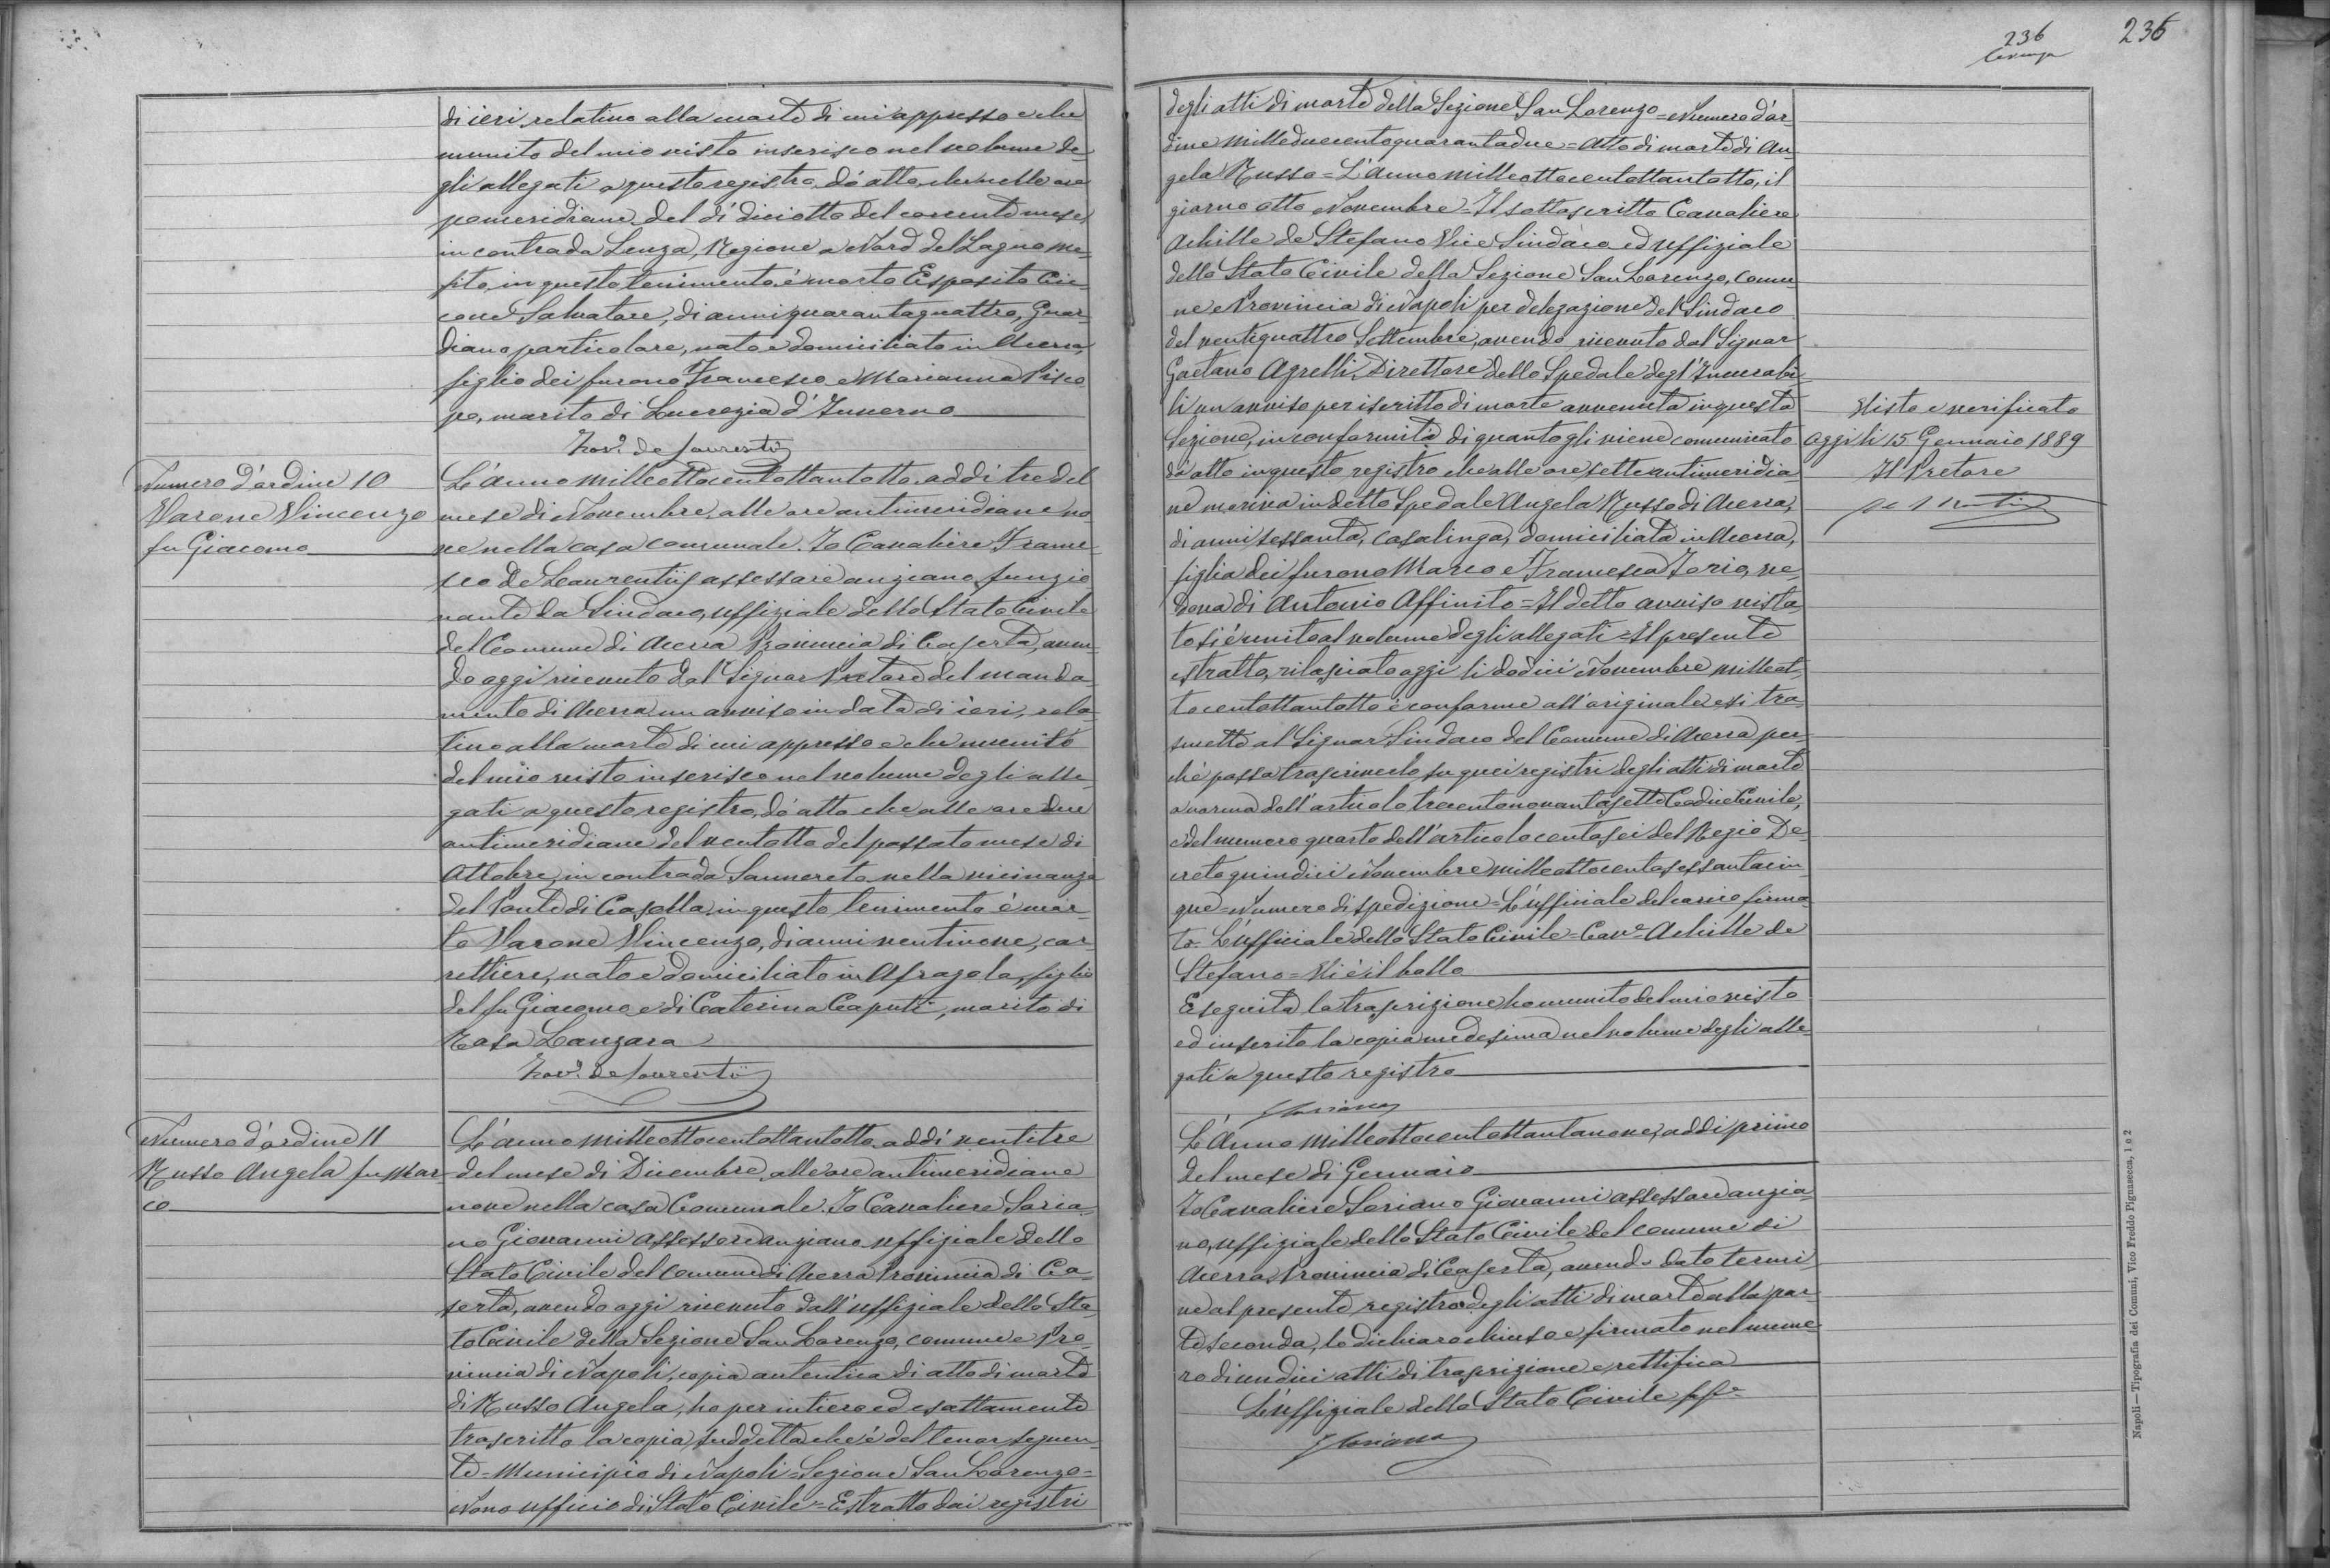 236
236
di ieri, relativo alla morte di cui appresso e che
munito del mio visto inserisco nel volume de-
gli allegati a questo registro, dò atto, che nelle ore
pomeridiane del dì diciotto del corrente mese,
in contrada Lenza, Regione a Nord del Lagno me-
fito, in questo tenimento, è morto Esposito Cic-
cone Salvatore, di anni quarantaquattro, Guar-
diano particolare, nato e domiciliato in Acerra,
figlio dei furono Francesco e Marianna Pisco-
po, marito di Lucrezia d'Inverno
Numero d'ordine 10
Varone Vincenzo
fu Giacomo
L'anno milleottocentottantotto, addì tre del
mese di Novembre, alle ore antimeridiane no-
ve nella casa comunale. Io Cavaliere France-
sco de Laurentiis assessore anziano funzio-
nante da Sindaco, uffiziale dello Stato Civile
del Comune di Acerra Provincia di Caserta, aven-
do oggi ricevuto dal Signor Pretore del manda-
mento di Acerra un avviso in data di ieri, rela-
tivo alla morte di cui appresso e che munito
del mio visto inserisco nel volume degli alle-
gati a questo registro, dò atto che alle ore due
antimeridiane del ventotto del passato mese di
Ottobre, in contrada Sannereto nella vicinanza
del Ponte di Casolla, in questo tenimento è mor-
to Varone Vincenzo, di anni ventinove, car-
rettiere, nato e domiciliato in Afragola, figlio
del fu Giacomo e di Caterina Caputi, marito di
Rosa Lanzara
Cav. de Laurentiis
Numero d'ordine 11
Russo Angela fu Mar-
co
L'anno milleottocentottantotto, addì ventitre
del mese di Dicembre, alle ore antimeridiane
nove nella casa Comunale. Io Cavaliere Soria-
no Giovanni assessore anziano uffiziale dello
Stato Civile del Comune di Acerra Provincia di Ca-
serta, avendo oggi ricevuto dall'uffiziale dello Sta-
to Civile della Sezione San Lorenzo, comune e Pro-
vincia di Napoli, copia autentica di atto di morte
di Russo Angela, ho per intiero ed esattamente
trascritto la copia suddetta che è del tenor seguen-
te = Municipio di Napoli = Sezione San Lorenzo =
Nono ufficio di Stato Civile = Estratto dai registri
degli atti di morte della Sezione San Lorenzo = Numero d'or-
dine milleduecentoquarantadue = Atto di morte di An-
gela Russo = L'anno milleottocentottantotto, il
giorno otto Novembre = Il sottoscritto Cavaliere
Achille de Stefano Vice Sindaco ed uffiziale
dello Stato Civile della Sezione San Lorenzo, comu-
ne e Provincia di Napoli per delegazione del Sindaco
del ventiquattro Settembre, avendo ricevuto dal Signor
Gaetano Agrelli, Direttore dello Spedale degl'Incurabi-
li un avviso per iscritto di morte avvenuta in questa
Sezione, in conformità di quanto gli viene comunicato
dà atto in questo registro che alle ore sette antimeridia-
ne moriva in detto Spedale Angela Russo di Acerra,
di anni sessanta, casalinga, domiciliata in Acerra,
figlia dei furono Marco e Francesca Iorio, ve-
dova di Antonio Affinito = Il detto avviso vista-
to si è unito al volume degli allegati = Il presente
estratto, rilasciato oggi li dodici Novembre milleot-
tocentottantotto è conforme all'originale e si tra-
smette al Signor Sindaco del Comune di Acerra per-
chè possa trascriverlo su quei registri degli atti di morte
a norma dell'articolo trecentonovantasette Codice Civile,
e del numero quarto dell'articolo centosei del Regio De-
creto quindici Novembre milleottocentosessantacin-
que = Numero di spedizione = L'ufficiale del carico firma-
to = L'ufficiale dello Stato Civile = Cav. Achille de
Stefano = Vi è il bollo
Eseguita la trascrizione, ho munito del mio visto
ed inserito la copia medesima nel volume degli alle-
gati a questo registro
Soriano
L'Anno milleottocentottantanove, addì primo
del mese di Gennaio
Io Cavaliere Soriano Giovanni assessore anzia-
no, uffiziale dello Stato Civile del comune di
Acerra, Provincia di Caserta, avendo dato termi-
ne al presente registro degli atti di morte alla par-
te seconda, lo dichiaro chiuso e firmato nel nume-
ro di undici atti di trascrizione e rettifica
L'uffiziale dello Stato Civile ff.
Soriano
Visto e verificato
oggi li 15 Gennaio 1889
Il Pretore
Napoli — Tipografia dei Comuni, Vico Freddo Pignasecca, 1 e 2